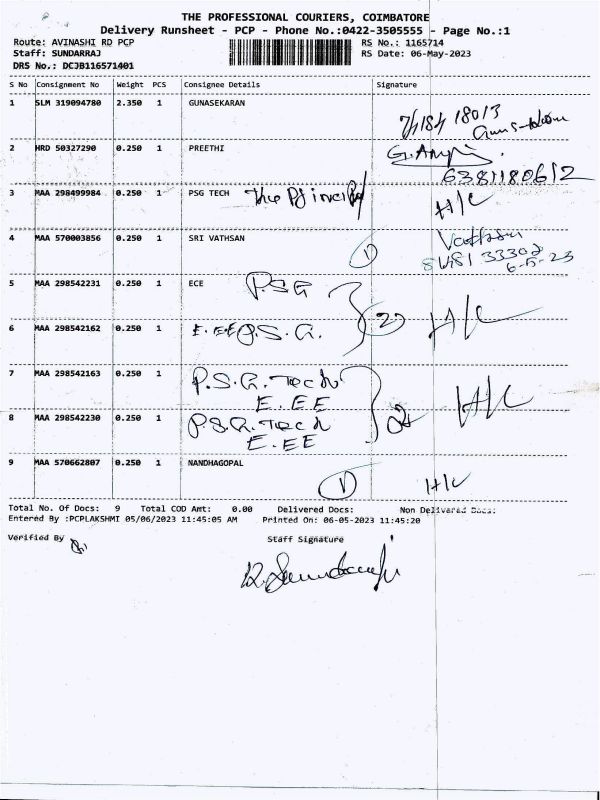 THE PROFESSIONAL COURIERS, COIMBATORE
Delivery Runsheet - PCP - Phone No.:0422-3505555 - Page No.:1
Route: AVINASHI RD PCP RS No.: 1165714
Staff: SUNDARRAJ RS Date: 06-May-2023
DRS No.: DCJB116571401
S No Consignment No Weight PCS Consignee Details Signature
1 SLM 319094780 2.350 1 GUNASEKARAN
18013
2 HRD 50327290 0.250 1 PREETHI
6381180612
3 MAA 298499984 0.250 1 PSG TECH The H/C
4 MAA 570003856 0.250 1 SRI VATHSAN 1 Vathsan
33302
6-5-23
5 MAA 298542231 0.250 1 ECE P.S.G
6 MAA 298542162 0.250 1 E.EE P.S.G. 2 H/C
7 MAA 298542163 0.250 1 P.S.G. Tech
E.EE 2 H/C
8 MAA 298542230 0.250 1 P.S.G. Tech
E.EE
9 MAA 570662807 0.250 1 NANDHAGOPAL
1 H/C
Total No. Of Docs: 9 Total COD Amt: 0.00 Delivered Docs: Non Delivered Docs:
Entered By :PCPLAKSHMI 05/06/2023 11:45:05 AM Printed On: 06-05-2023 11:45:20
Verified By Staff Signature